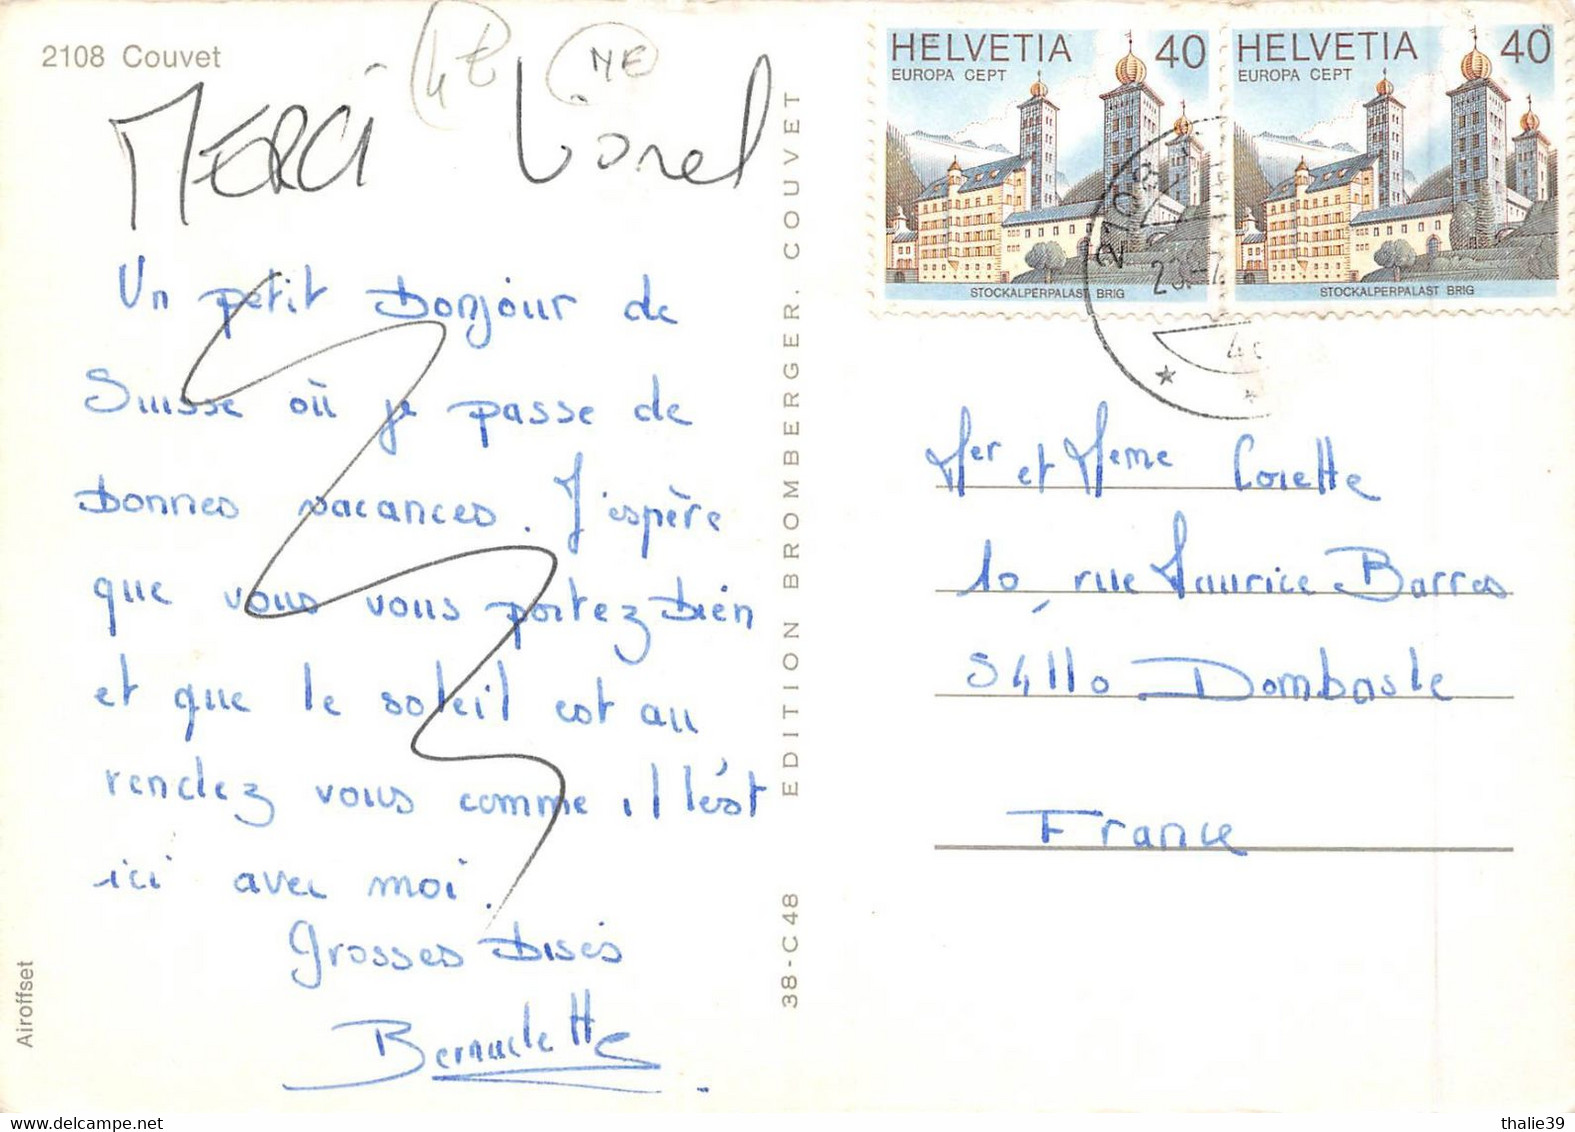 2108 Couvet
4€
NE
MERCI Lionel
Un petit Bonjour de
Suisse où je passe de
Bonnes vacances. J'espère
que vous vous portez Bien
et que le soleil est au
rendez vous comme il l'est
ici avec moi.
Grosses Bises
Bernadette
Airoffset
38-C48 EDITION BROMBERGER, COUVET
HELVETIA 40
EUROPA CEPT
STOCKALPERPALAST BRIG
HELVETIA 40
EUROPA CEPT
STOCKALPERPALAST BRIG
2108
Mer et Meme Colette
10, rue Maurice Barres
54110 Dombasle
France
thalie39